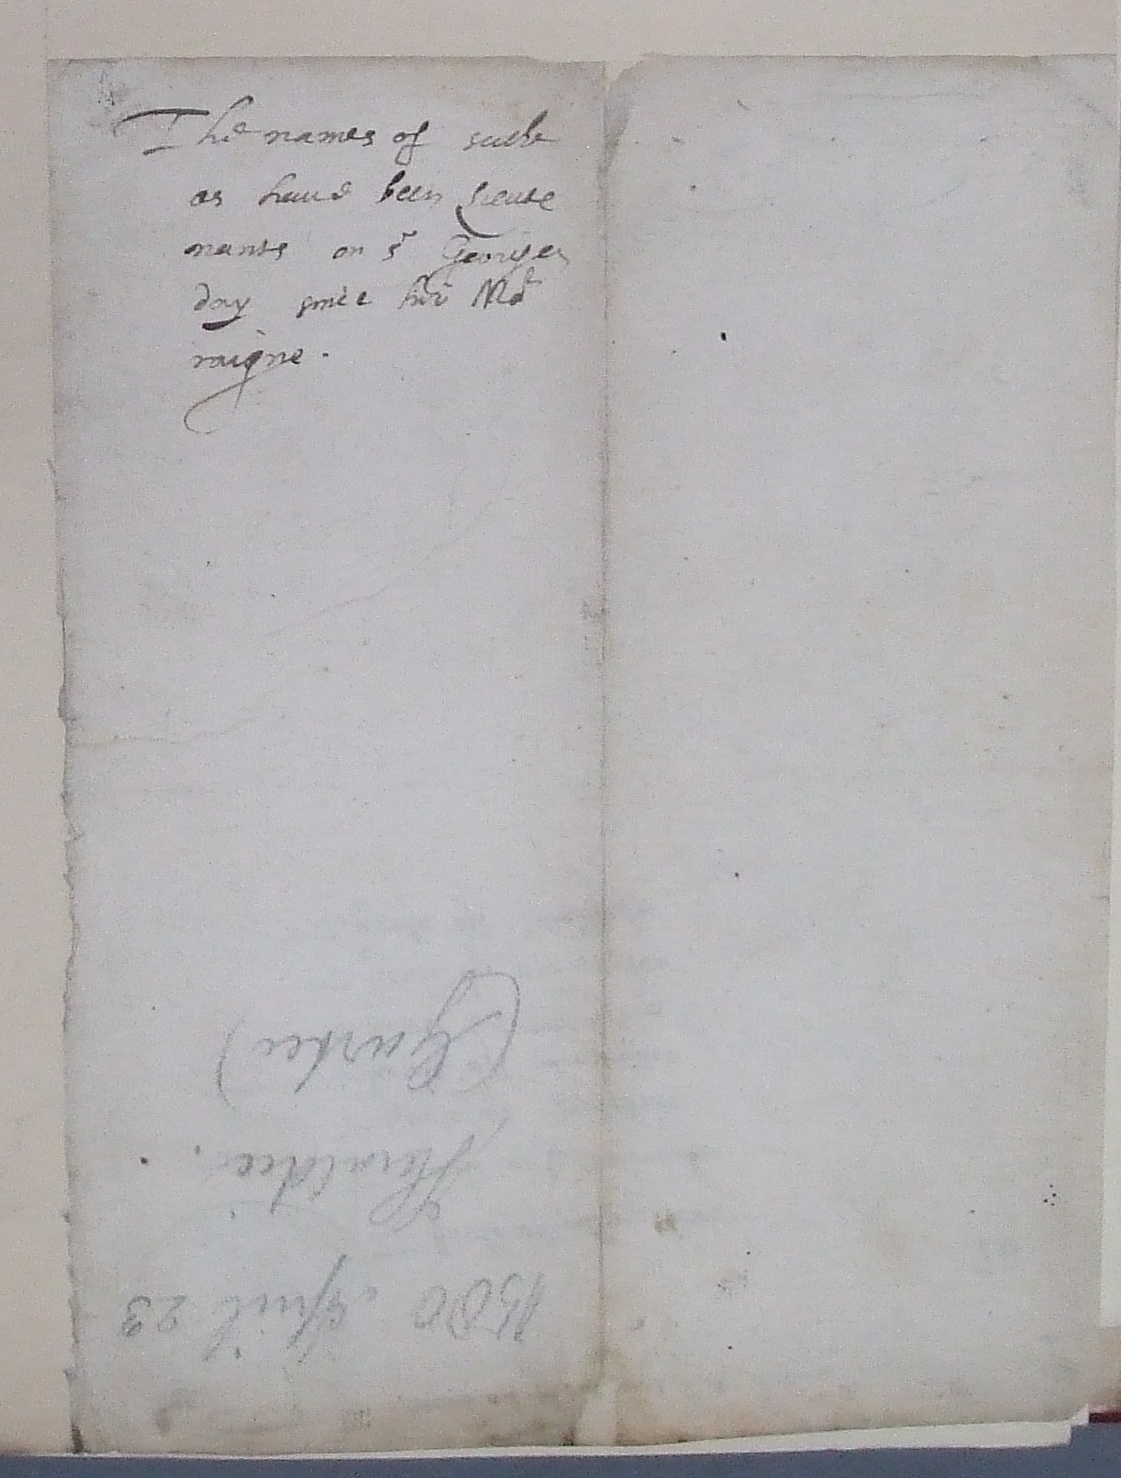 The names of suche
as haue been lieute
nants on St Georges
day since her Mats
raigne.
1580 April 23
Heraldic.
(Garter)